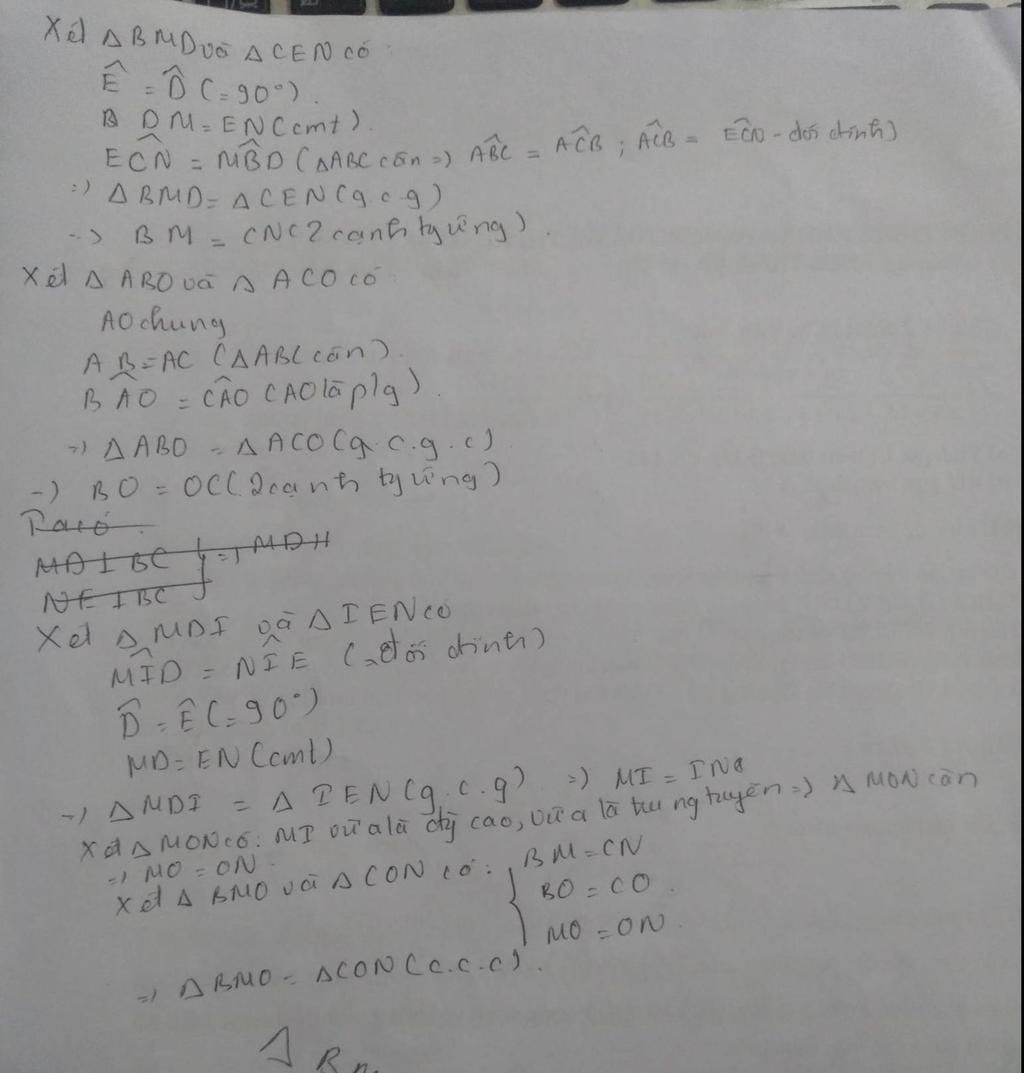 Xét Δ BMD và Δ CEN có:
Ê = D̂ (=90°).
DM = EN (cmt).
EĈN = MB̂D (ΔABC cân => AB̂C = AĈB ; AĈB = EĈN - đối đỉnh)
=> Δ BMD = Δ CEN (g.c.g)
-> BM = CN (2 cạnh tg ứng).
Xét Δ ABO và Δ ACO có:
AO chung
AB = AC (ΔABC cân).
BÂO = CÂO (AO là p/g).
=> Δ ABO = Δ ACO (g.c.g.c)
-) BO = OC (2 cạnh tg ứng)
Ta có
MD ⊥ BC } => MDH
NE ⊥ BC
Xét Δ MDI và Δ IEN có
MÎD = NÎE (đối đỉnh)
D̂ = Ê (=90°)
MD = EN (cmt)
-) Δ MDI = Δ IEN (g.c.g) =) MI = IN
Xét Δ MON có: MI vừa là đg cao, vừa là trung tuyến =) Δ MON cân
=) MO = ON.
Xét Δ BMO và Δ CON có: { BM = CN
BO = CO.
MO = ON.
=) Δ BMO = Δ CON (c.c.c).